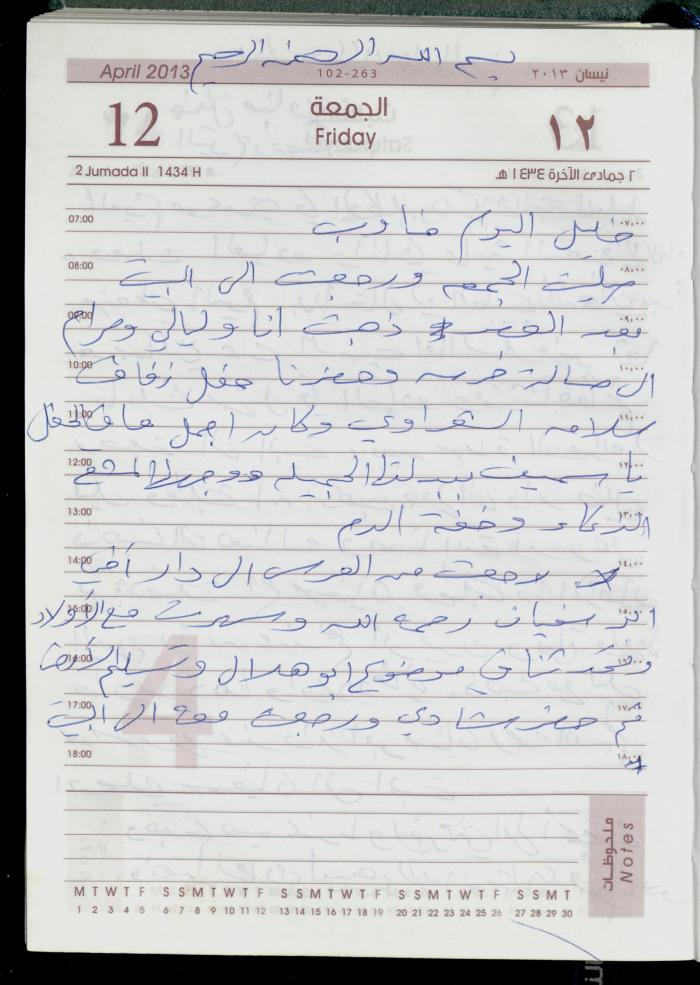 بسم الله الرحمن الرحيم
April 2013 102-263 نيسان ٢٠١٣
12 الجمعة ١٢
Friday
2 Jumada II 1434 H ٢ جمادى الآخرة ١٤٣٤ هـ
07:00 اليوم ٠٧,٠٠
08:00 صليت الجمعه ورجعت الى البيت ٠٨,٠٠
09:00 بعد العصر ذهبت انا وليالي ومرام ٠٩,٠٠
10:00 الى صالة وحضرنا حفل زفاف ١٠,٠٠
11:00 سلامه الشعراوي وكان اجمل مافي الحفل ١١,٠٠
12:00 ياسمين الجميله ١٢,٠٠
13:00 الذكاء وخفة الدم ١٣,٠٠
14:00 رجعت من العرس الى دار أخي ١٤,٠٠
15:00 ابو سفيان رحمه الله وسهرت مع الأولاد ١٥,٠٠
16:00 وتحدثنا في موضوع ابو هلال وتسليم ١٦,٠٠
17:00 ثم حضر شادي ورجعت معه الى البيت ١٧,٠٠
18:00 ١٨,٠٠
4
ملحوظات
Notes
M T W T F S S M T W T F S S M T W T F S S M T W T F S S M T
1 2 3 4 5 6 7 8 9 10 11 12 13 14 15 16 17 18 19 20 21 22 23 24 25 26 27 28 29 30